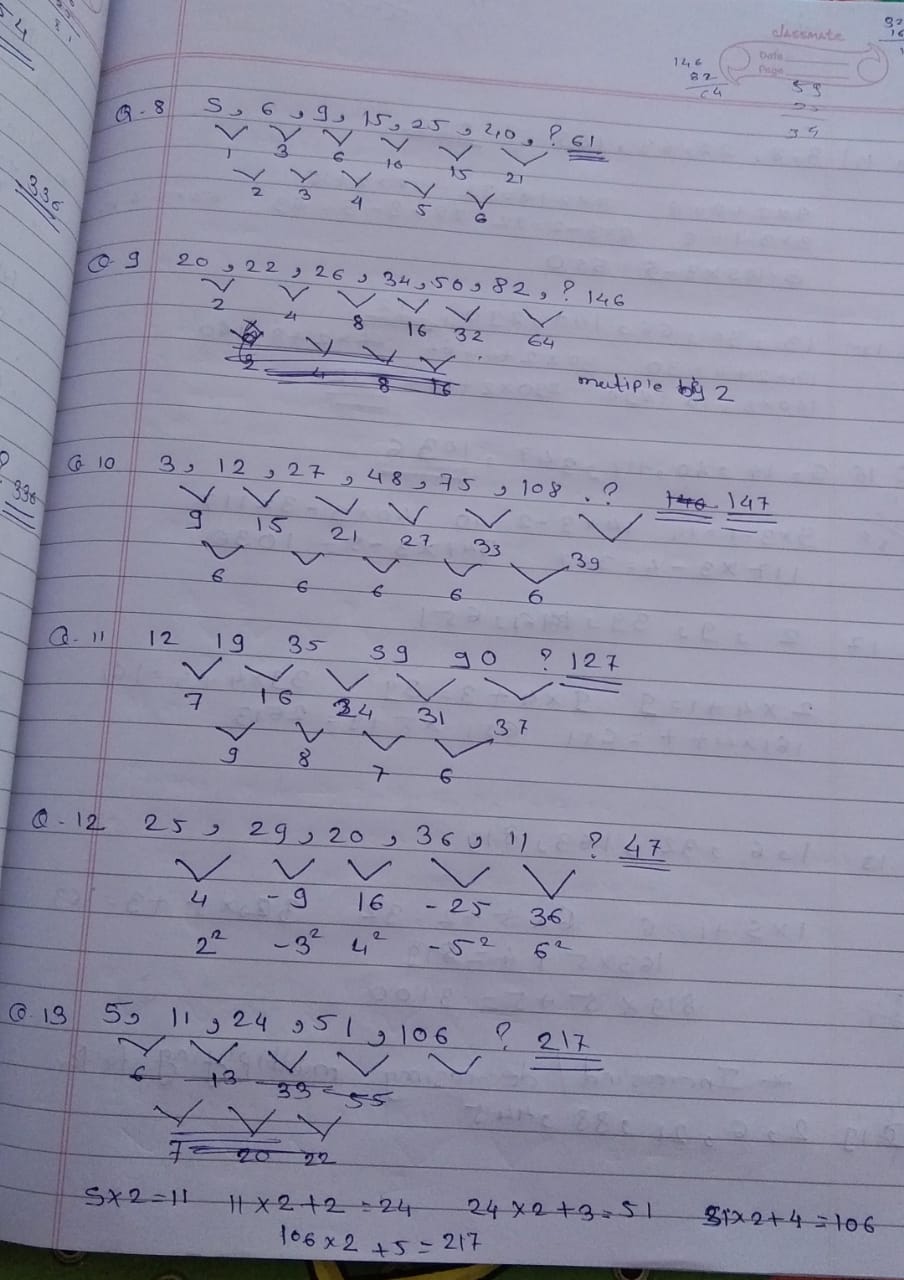 classmate
Date
Page
146
82
64
336
336
Q. 8 5, 6, 9, 15, 25, 40, ? 61
1 3 6 10 15 21
2 3 4 5 6
Q 9 20, 22, 26, 34, 50, 82, ? 146
2 4 8 16 32 64
2 4 8 16
multiple by 2
Q 10 3, 12, 27, 48, 75, 108, ? 146 147
9 15 21 27 33 39
6 6 6 6 6
Q. 11 12 19 35 59 90 ? 127
7 16 24 31 37
9 8 7 6
Q. 12 25, 29, 20, 36, 11 ? 47
4 -9 16 -25 36
2² -3² 4² -5² 6²
Q. 13 5, 11, 24, 51, 106 ? 217
6 13 33 55
7 20 22
5x2=11 11x2+2=24 24x2+3=51 51x2+4=106
106x2+5=217